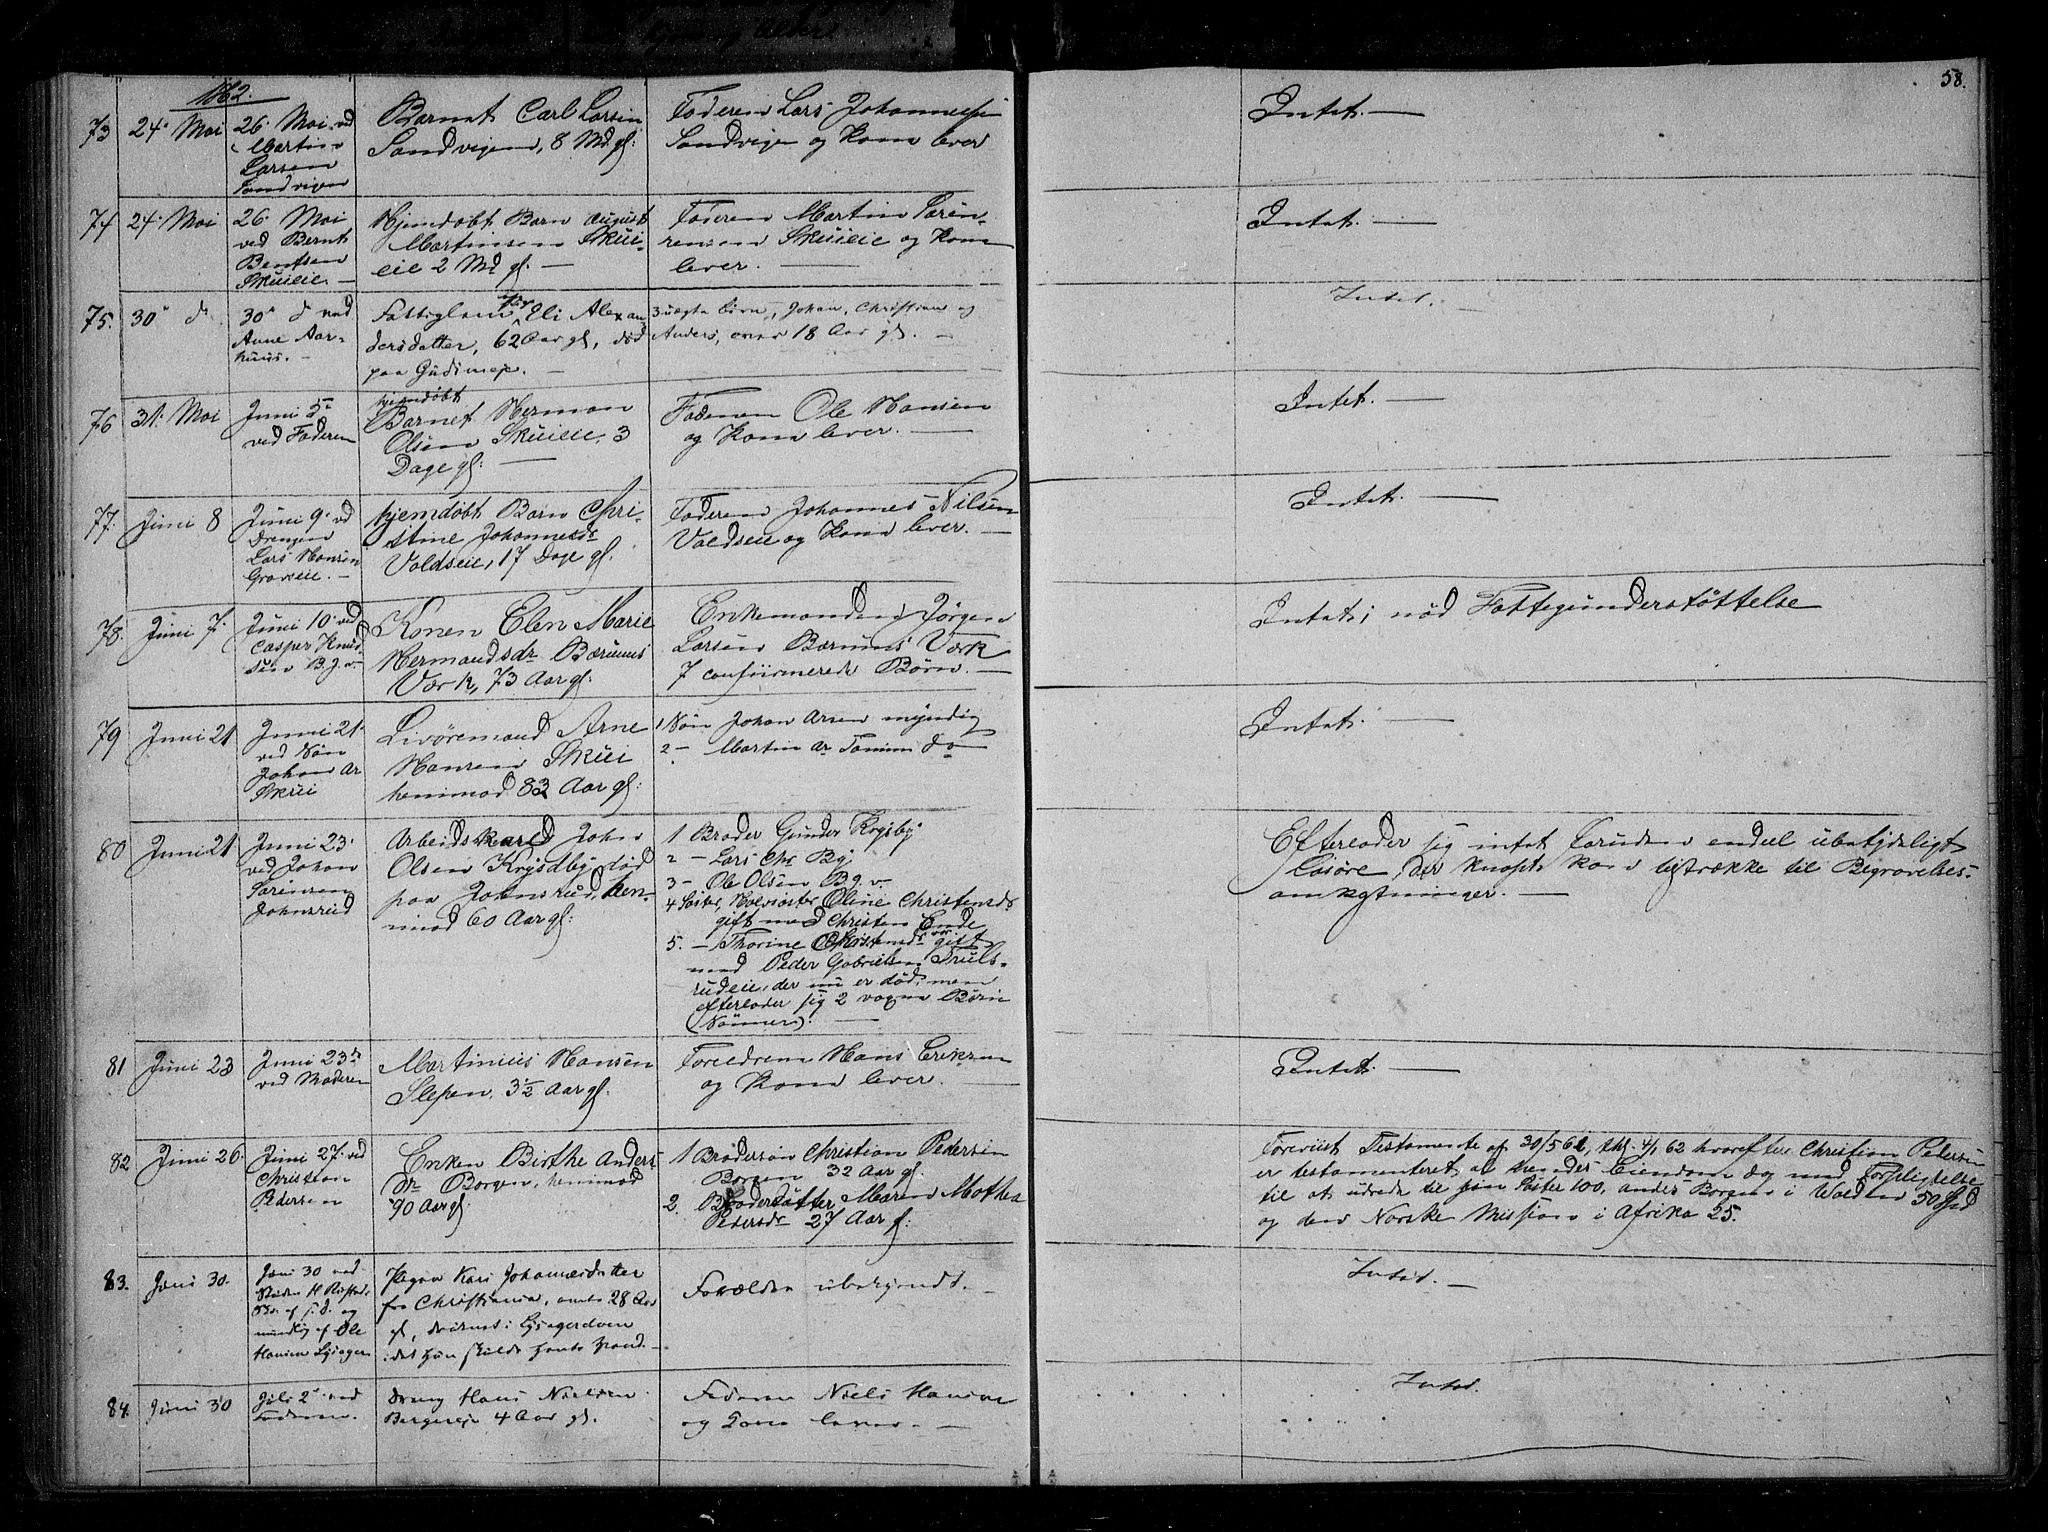 58.
1862.
73 24. Mai 26. Mai ved Martin Larsen Sandvigen
Barnet Carl Larsen Sandvigen, 8 Md gl:
Faderen Lars Johannesen Sandvigen og Kone lever
Intet. —
74 24. Mai 26. Mai ved Bernt Bentsen Skuieie. —
Hjemdøbt Barn August Martinsen Skuieie 2 Md gl. —
Faderen Martin Sørensen Skuieie og Kone lever. —
Intet. —
75. 30 d 30 d ved Anne Aarhuus. —
Fattiglem Eli Alexandersdatter, 62 Aar gl, død paa Gudimeje. —
3 uægte Børn, Johan, Christian og Anders, over 18 Aar gl. —
Intet.
76 31. Mai Juni 5 ved Faderen
hjemdøbt Barnet Herman Olsen Skuieie, 3 Dage gl: —
Faderen Ole Hansen og Kone lever. —
Intet. —
77. Juni 8 Juni 9. vd Drengen Lars Hansen Graveie. —
hjemdøbt Barn Christine Johannesdr Valdseie, 17 Dage gl.
Faderen Johannes Nilsen Valdseie og Kone lever. —
Intet. —
78. Juni 7. Juni 10. vd Casper Knudsen B.g.v.
Konen Elen Marie Hermandsdr Bærums Værk, 73 Aar gl:
Enkemanden Jørgen Larsen Bærums Værk
7 confirmerede Børn. —
Intet; nød Fattigunderstøttelse
79 Juni 21 Juni 21. ved Søn Johan Ar Skui
Livøremand Arne Hansen Skui henimod 83 Aar gl:
1 Søn Johan Arnen myndig
2 — Martin Ar Tanum do
Intet. —
80 Juni 21 Juni 23. ved Johan Sørensen Johnsrud
Arbeidskarl John Olsen Krydsby død paa Johnsrud, henimod 60 Aar gl:
1 Broder Gunder Krydsby
2 — Lars Chr By
3 — Ole Olsen B.g.v.
4 Søster, Halvsøster Oline Christensdr
gift med Christen Ende
5. — Thorine Christensdr var gift
med Peder Gabrielsen Trulsrudeie, der nu er død, men
efterlader sig 2 voxne Børn
(Sønner). —
Efterlader sig intet foruden endeel ubetydeligt
Løsøre, der knapt kan tilstrække til Begravelsesomkostninger. —
81 Juni 23 Juni 23de ved Moderen
Martinius Hansen Slepen, 3½ Aar gl.
Forældrene Hans Eriksen og Kone lever.
Intet. —
82 Juni 26. Juni 27. ved Christian Pedersen
Enken Birthe Andersdr Borgen, henimod 90 Aar gl
1 Brodersøn Christian Pedersen Borgen 32 Aar gl.
2. Broderdatter Maren Mathea Pedersdr 27 Aar gl.
Foreviist Testamente af 30/5 61, thl. 4/1 62 hvorefter Christian Pedersen
er testamenteret al hendes Eiendom og med Forpligtelse
til at udrede til sin Søster 100, Anders Borgen i Walden 50 Spd
og den Norske Mission i Afrika 25.
83. Juni 30. Juni 30 ved af s. d. og mundlig af Ole Hansen Lysager
Pigen Kari Johannesdatter fra Christiania, omtr 28 Aar gl, druknet i Lysagerelven idet hun skulde hente Vand. —
Forældre ubekjendt. —
Intet. —
84. Juni 30 Juli 2. ved Faderen.
Dreng Hans Nielsen Bergseje 4 Aar gl.
Faderen Niels Hansen og Kone lever. —
Intet.